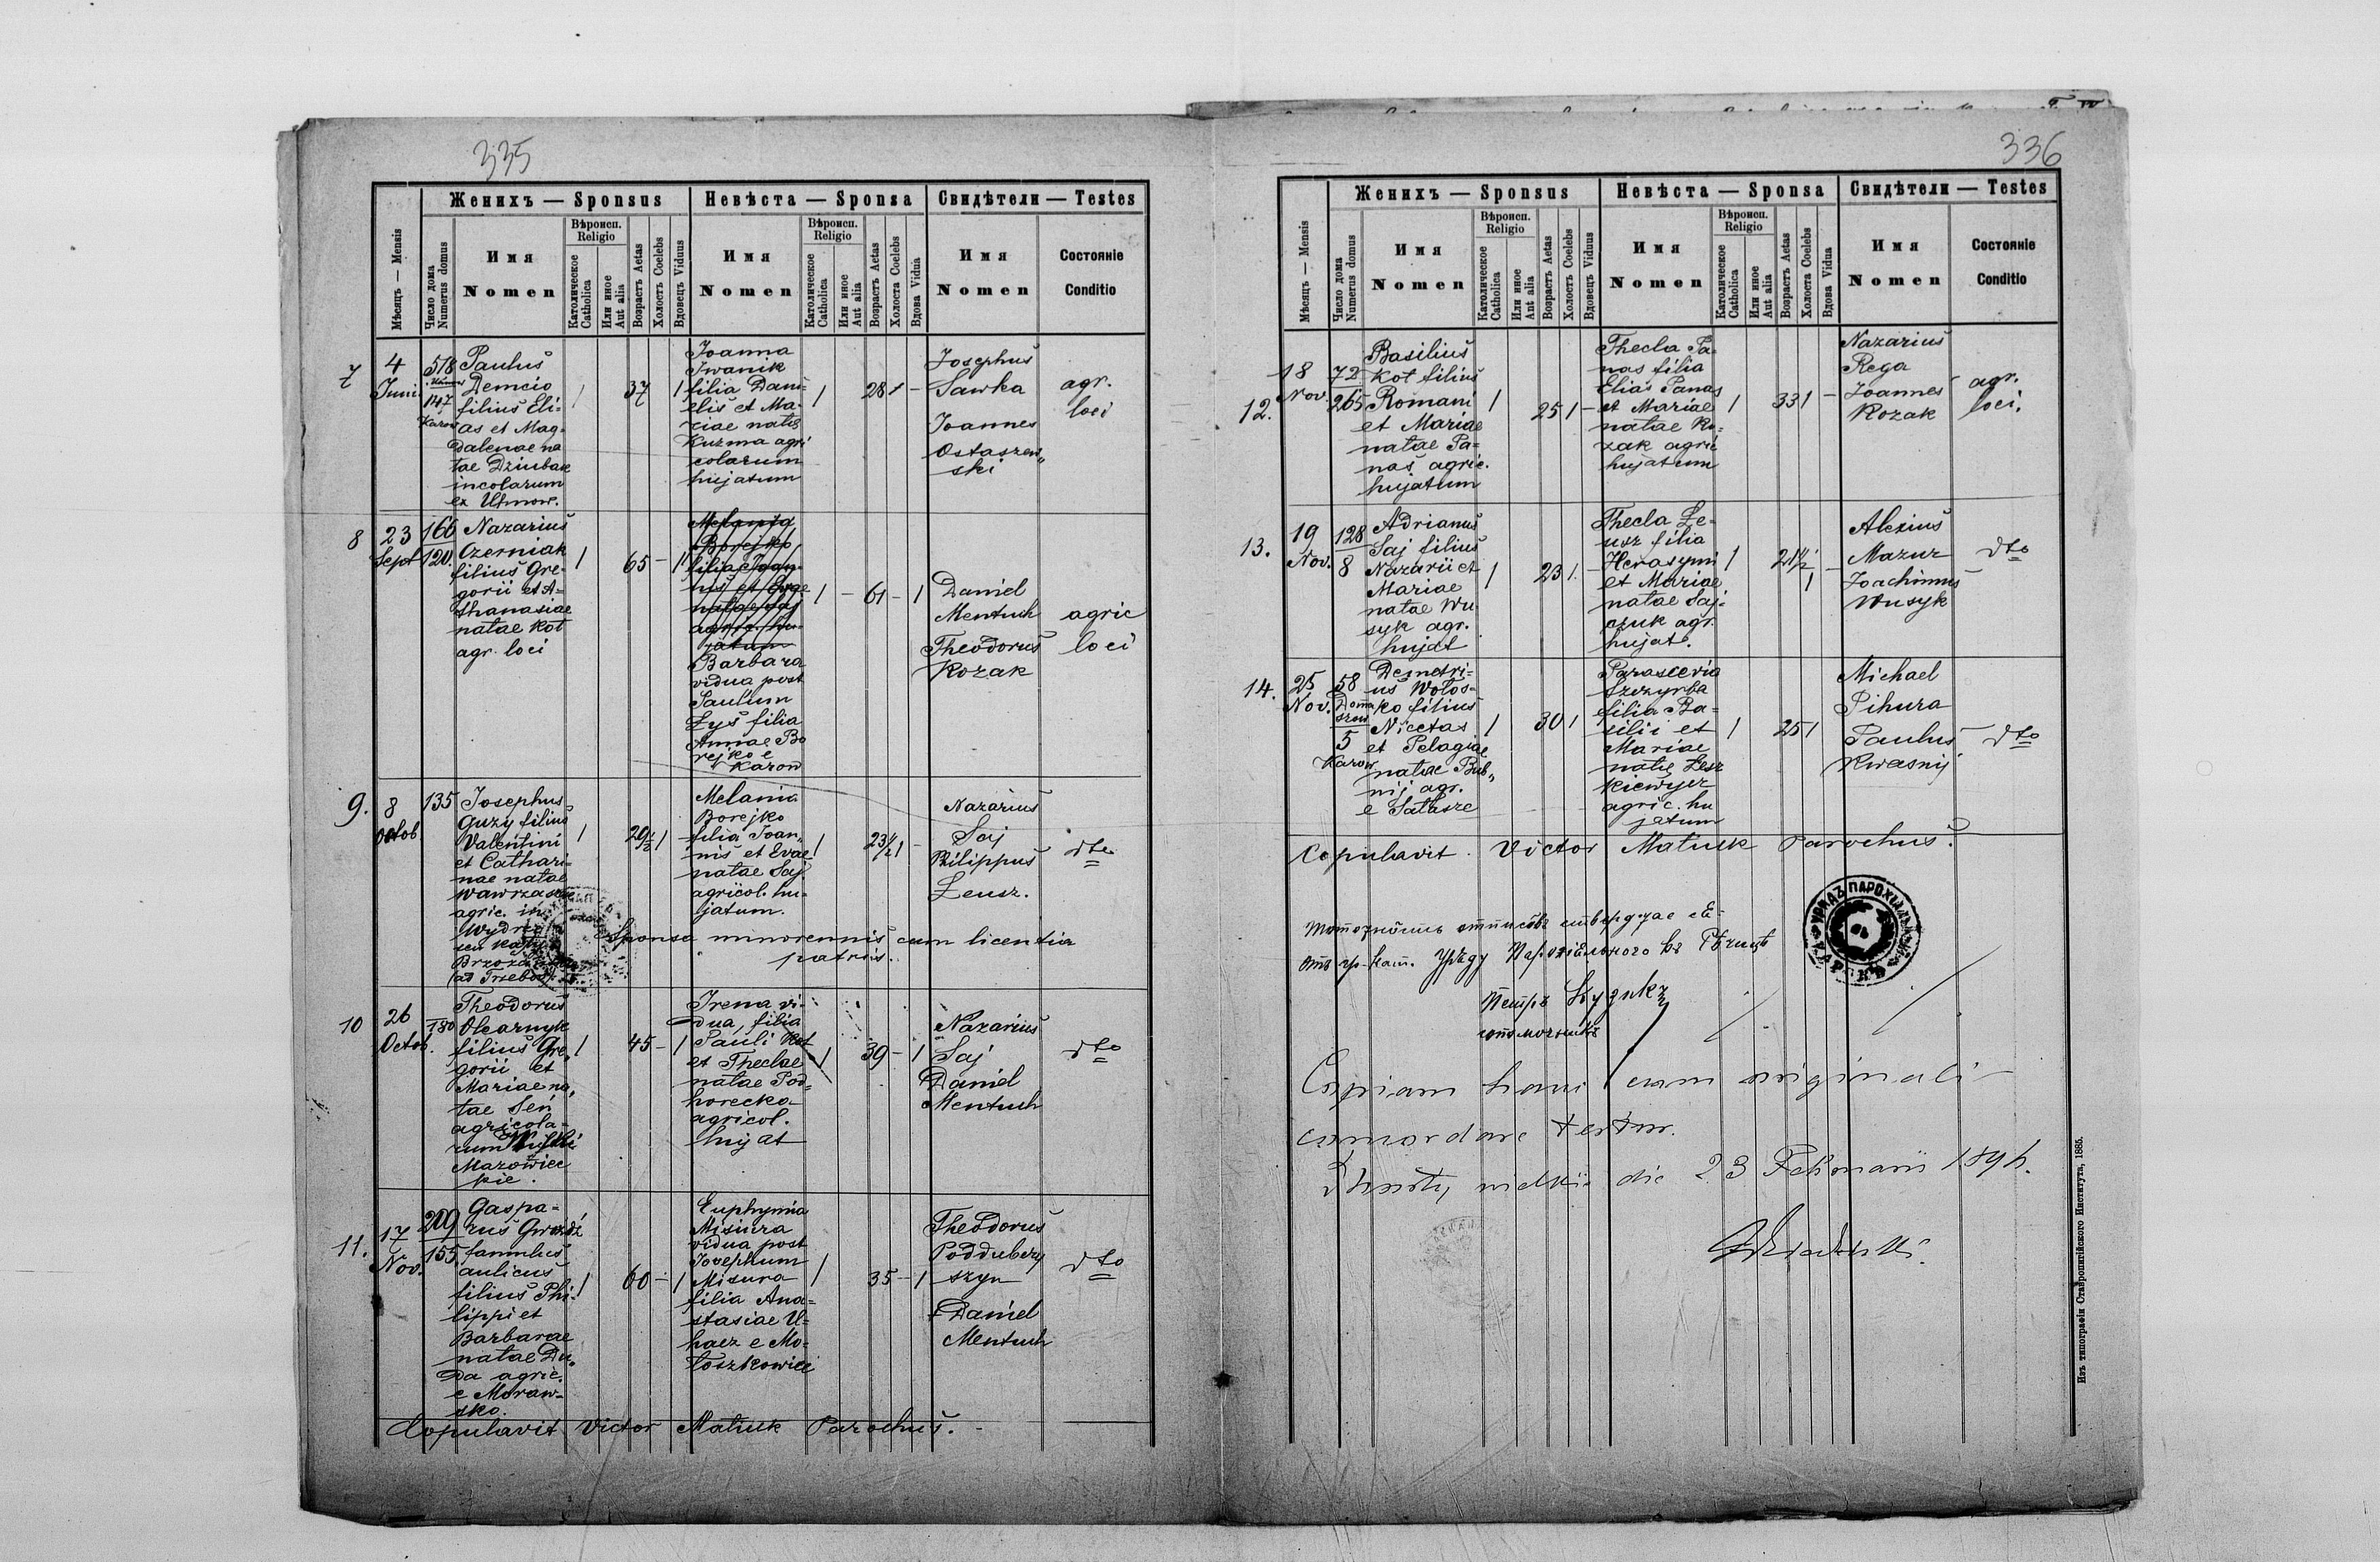 335
Женихъ — Sponsus
Невѣста — Sponsa
Свидѣтели — Testes
Мѣсяцъ — Mensis
Число дома
Numerus domus
Имя
Nomen
Вѣроисп.
Religio
Католическое
Catholica
Или иное
Aut alia
Возрастъ Aetas
Холостъ Coelebs
Вдовецъ Viduus
Имя
Nomen
Вѣроисп.
Religio
Католическое
Catholica
Или иное
Aut alia
Возрастъ Aetas
Холоста Coelebs
Вдова Vidua
Имя
Nomen
Состояніе
Conditio
7
4
Juni
518
147
Karow
Paulus
Demcio
filius Eli-
as et Mag-
dalenae na
tae Dziubak
incolarum
ex Uhnow.
1
37
1
Joanna
Iwanik
filia Dani-
elis et Ma-
riae natę
Kuzma agri
colarum
hujatum
1
28 1 -
Josephus
Sawka
Joannes
Ostaszew„
ski
agr.
loci
8
23
Sept
166
120.
Nazarius
Czerniak
filius Gre-
gorii et A-
thanasiae
natae Kot
agr. loci
1
65 - 1
Melania
Borejko
filia Joan-
nis et Evae
natae Saj
agric. hu-
jatum
Barbara
vidua post
Paulum
Łys filia
Annae Bo
rejko e
Karow
1 - 61 - 1
Daniel
Mentuch
Theodorus
Kozak
agric
loci
9.
8
Octob
135
Josephus
Guzy filius
Valentini
et Cathari-
nae natae
Wawrzaszek
agric. in
Wydrze
Brzoza
(ad Trzeboś)
1
29 1/2 1
Melania
Borejko
filia Joan„
nis et Evae
natae Saj
agricol. hu-
jatum.
1
23 1/2 1 -
Nazarius
Saj
Philippus
Leusz.
dto
Sponsa minorennis cum licentia
patris.
10
26
Octob.
180
Theodorus
Olearnyk
filius Gre„
gorii et
Mariae na„
tae Seń
agricola-
rum
Mazowiec
kie.
1
45 - 1
Irena vi-
dua, filia
Pauli Kot
et Theclae
natae Pod-
horecka
agricol.
hujat
1
39 - 1
Nazarius
Saj
Daniel
Mentuch
dto
11.
17
Nov.
209
155
Gaspa-
rus Gwozdź
famulus
aulicus
filius Phi-
lippi et
Barbarae
natae Du„
da agric.
e Moraw-
sko.
1
60 - 1
Euphymia
Misiura
vidua post
Josephum
Misiura
filia Ana-
stasiae U-
hacz e Mo-
łoszkowice
1
35 - 1
Theodorus
Poddubczy
szyn
Daniel
Mentuch
dto
Copulavit Victor Matiuk Parochus.
336
Женихъ — Sponsus
Невѣста — Sponsa
Свидѣтели — Testes
Мѣсяцъ — Mensis
Число дома
Numerus domus
Имя
Nomen
Вѣроисп.
Religio
Католическое
Catholica
Или иное
Aut alia
Возрастъ Aetas
Холостъ Coelebs
Вдовецъ Viduus
Имя
Nomen
Вѣроисп.
Religio
Католическое
Catholica
Или иное
Aut alia
Возрастъ Aetas
Холоста Coelebs
Вдова Vidua
Имя
Nomen
Состояніе
Conditio
12.
18
Nov.
72
265
Basilius
Kot filius
Romani
et Mariae
natae Pa-
nas agric.
hujatum
1
25 1 -
Thecla Pa-
nas filia
Elias Panas
et Mariae
natae Ko-
zak agric
hujatum
1
33 1 -
Nazarius
Rega
Joannes
Kozak
agr.
loci.
13.
19
Nov.
128
8
Adrianus
Saj filius
Nazarii et
Mariae
natae Wu
syk agr.
hujat
1
23 1.
Thecla Le-
usz filia
Herasymi
et Mariae
natae Saj-
czuk agr.
hujat.
1
21 1/2 -
1
Alexius
Mazur
Joachimus
Wusyk
dto
14.
25
Nov.
58
Doma
szow
5
Karow
Demetri-
us Wołos-
ko filius
Nicetas
et Pelagiae
natae Bub„
nij agr.
e Sałasze
1
30 1
Parascevia
Szczyrba
filia Ba-
silii et
Mariae
natę Łesz
kiewycz
agric. hu
jatum
1
25 1
Michael
Pihura
Paulus
Kwasnij
dto
Copulavit Victor Matiuk Parochus.
Отъ гр. кат. Уряду Парохіяльного въ Рѣчицѣ
Петръ
Copiam hanc cum originali
concordare testor.
die 23 Februarii 189
Изъ типографіи Ставропигійского Института, 1885.